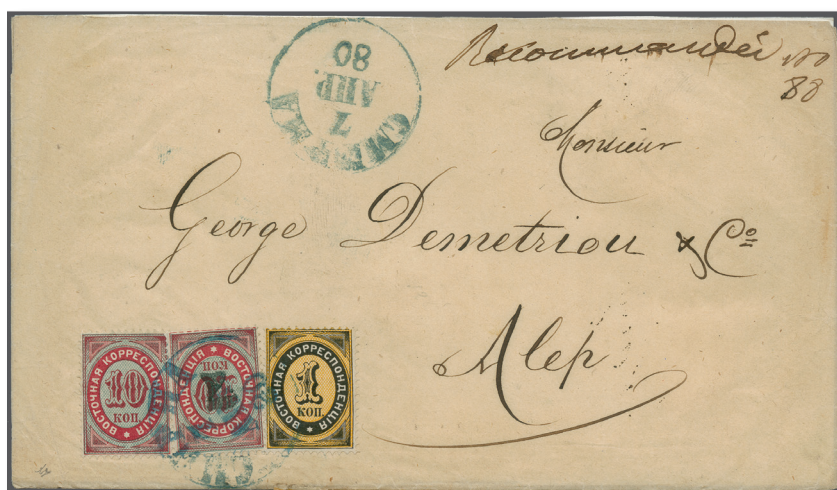 Recommandée No
88
80
АПР.
7
СМИРНА
Monsieur
George Demetriou & Co
Alep
ВОСТОЧНАЯ КОРРЕСПОНДЕНЦІЯ
10
КОП.
ВОСТОЧНАЯ КОРРЕСПОНДЕНЦІЯ
КОП
ВОСТОЧНАЯ КОРРЕСПОНДЕНЦІЯ
1
КОП.